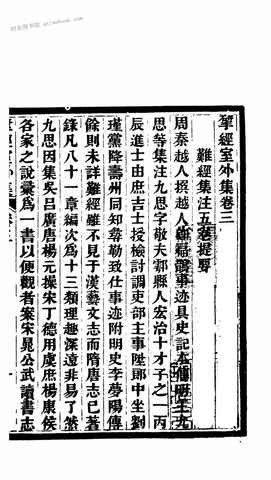 揅經室外集卷三
難經集注五卷提要
周秦越人撰越人即扁鵲事迹具史記本傳明王九
思等集注九思字敬夫鄠縣人宏治十才子之一丙
辰進士由庶吉士授檢討調吏部主事陞郎中坐劉
瑾黨降壽州同知尋勒致仕事迹附明史李夢陽傳
餘則未詳難經雖不見于漢藝文志而隋唐志已著
錄凡八十一章編次為十三類理趣深遠非易了然
九思因集吳呂廣楊元操宋丁德用虞庶楊康侯
各家之說彙為一書以便觀者案宋晁公武讀書志